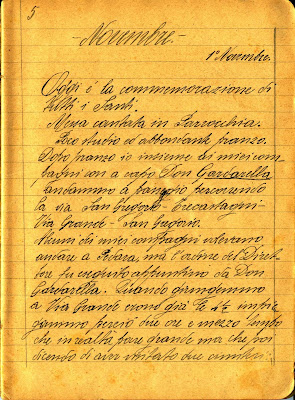 5
-Novembre.-
1º Novembre.
Oggi è la commemorazione di
Tutti i Santi.
Messa cantata in Parrocchia.
Poco studio ed abbondante pranzo.
Dopo pranzo io insieme ai miei com
pagni con a capo Don Garbarella
andammo a passeggio percorrendo
la via San Gregorio - Trecastagni -
Via Grande - San Gregorio.
Alcuni di miei compagni volevano
andare a Pedara, ma l'ordine del Diret
tore fu eseguito appuntino da Don
Garbarella. Quando giungemmo
a Via Grande erano già le
gammo perciò due ore e mezzo tempo
che in realtà pare grande ma che poi
dicendo di aver visitato due